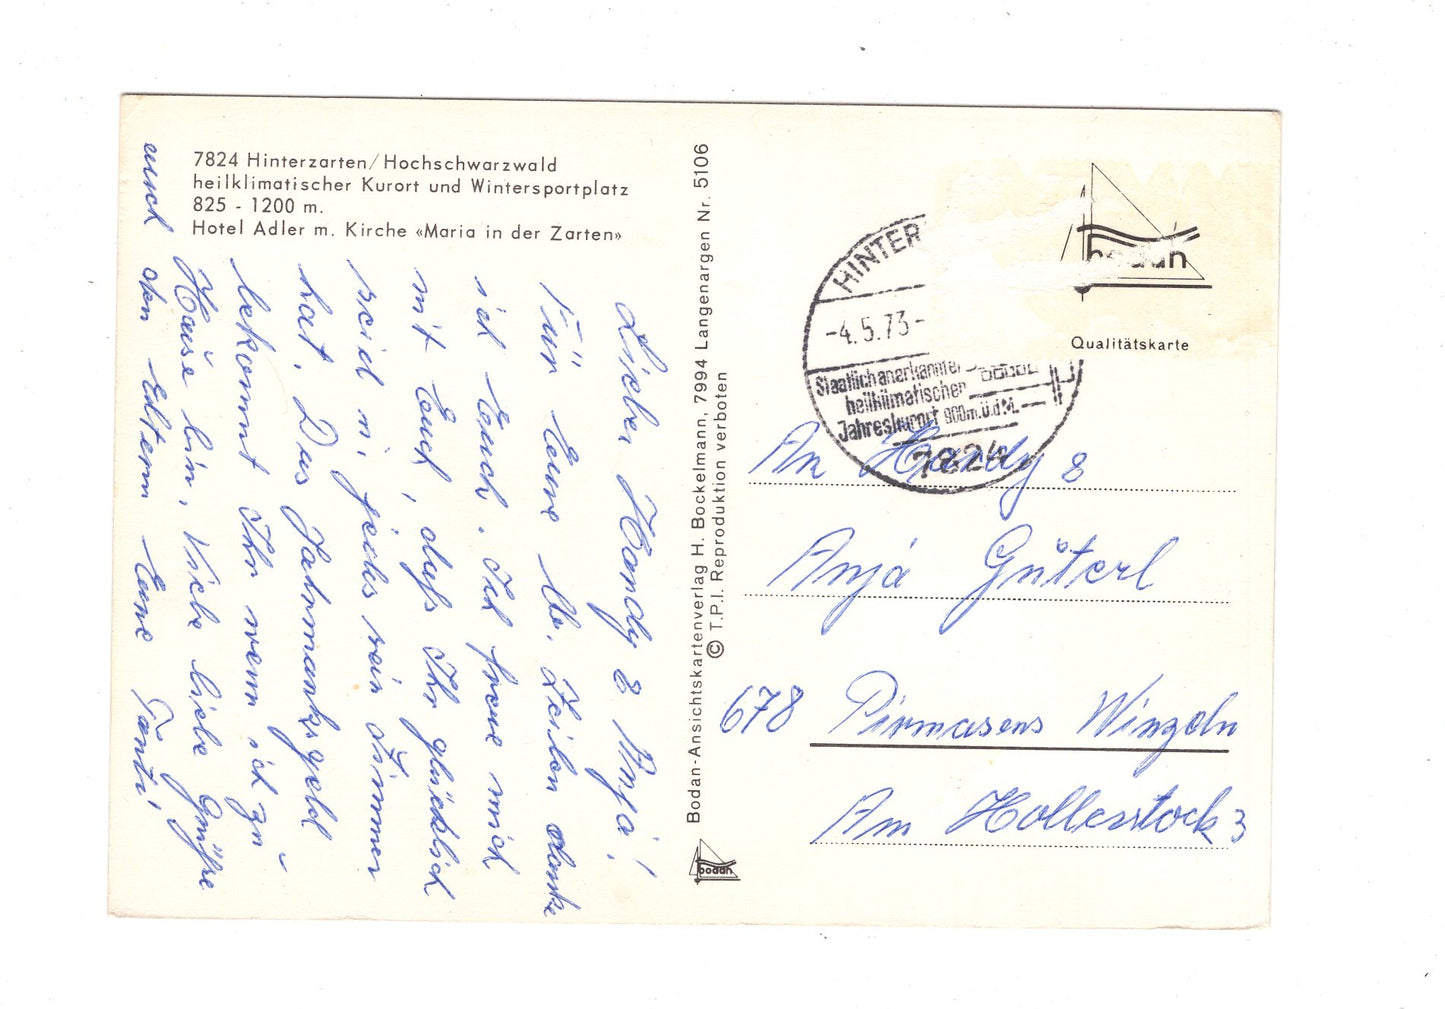 7824 Hinterzarten/Hochschwarzwald
heilklimatischer Kurort und Wintersportplatz
825 - 1200 m.
Hotel Adler m. Kirche «Maria in der Zarten»
Lieber Handy & Anja!
Für Eure lb. Zeilen danke
ich Euch. Ich freue mich
mit Euch, daß Ihr glücklich
seid m. jedes sein Zimmer
hat. Das Jahrmarktsgeld
bekommt Ihr wenn ich zu
Hause bin. Viele liebe Grüße
auch den Eltern Eure Tanti
Bodan-Ansichtskartenverlag H. Bockelmann, 7994 Langenargen Nr. 5106
© T.P.I. Reproduktion verboten
bodan
HINTER
-4.5.73-
Staatlich anerkannter
heilklimatischer
Jahreskurort 900m.ü.d.M.
7824
bodan
Qualitätskarte
An Handy &
Anja Güterl
678 Pirmasens Winzeln
Am Hollerstock 3